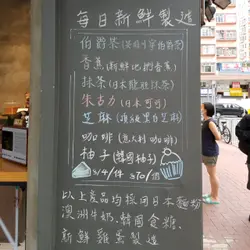 每日新鮮製造
伯爵茶(英國川寧伯爵茶)
香蕉(新鮮地捫香蕉)
抹茶(日本龍牌抹茶)
朱古力(日本可可)
芝麻(黑芝麻)
咖啡(意大利咖啡)
柚子(韓國柚子)
$14/件 $70/
以上產品均採用日本麵粉
澳洲牛奶、韓國食糖、
新鮮雞蛋製造